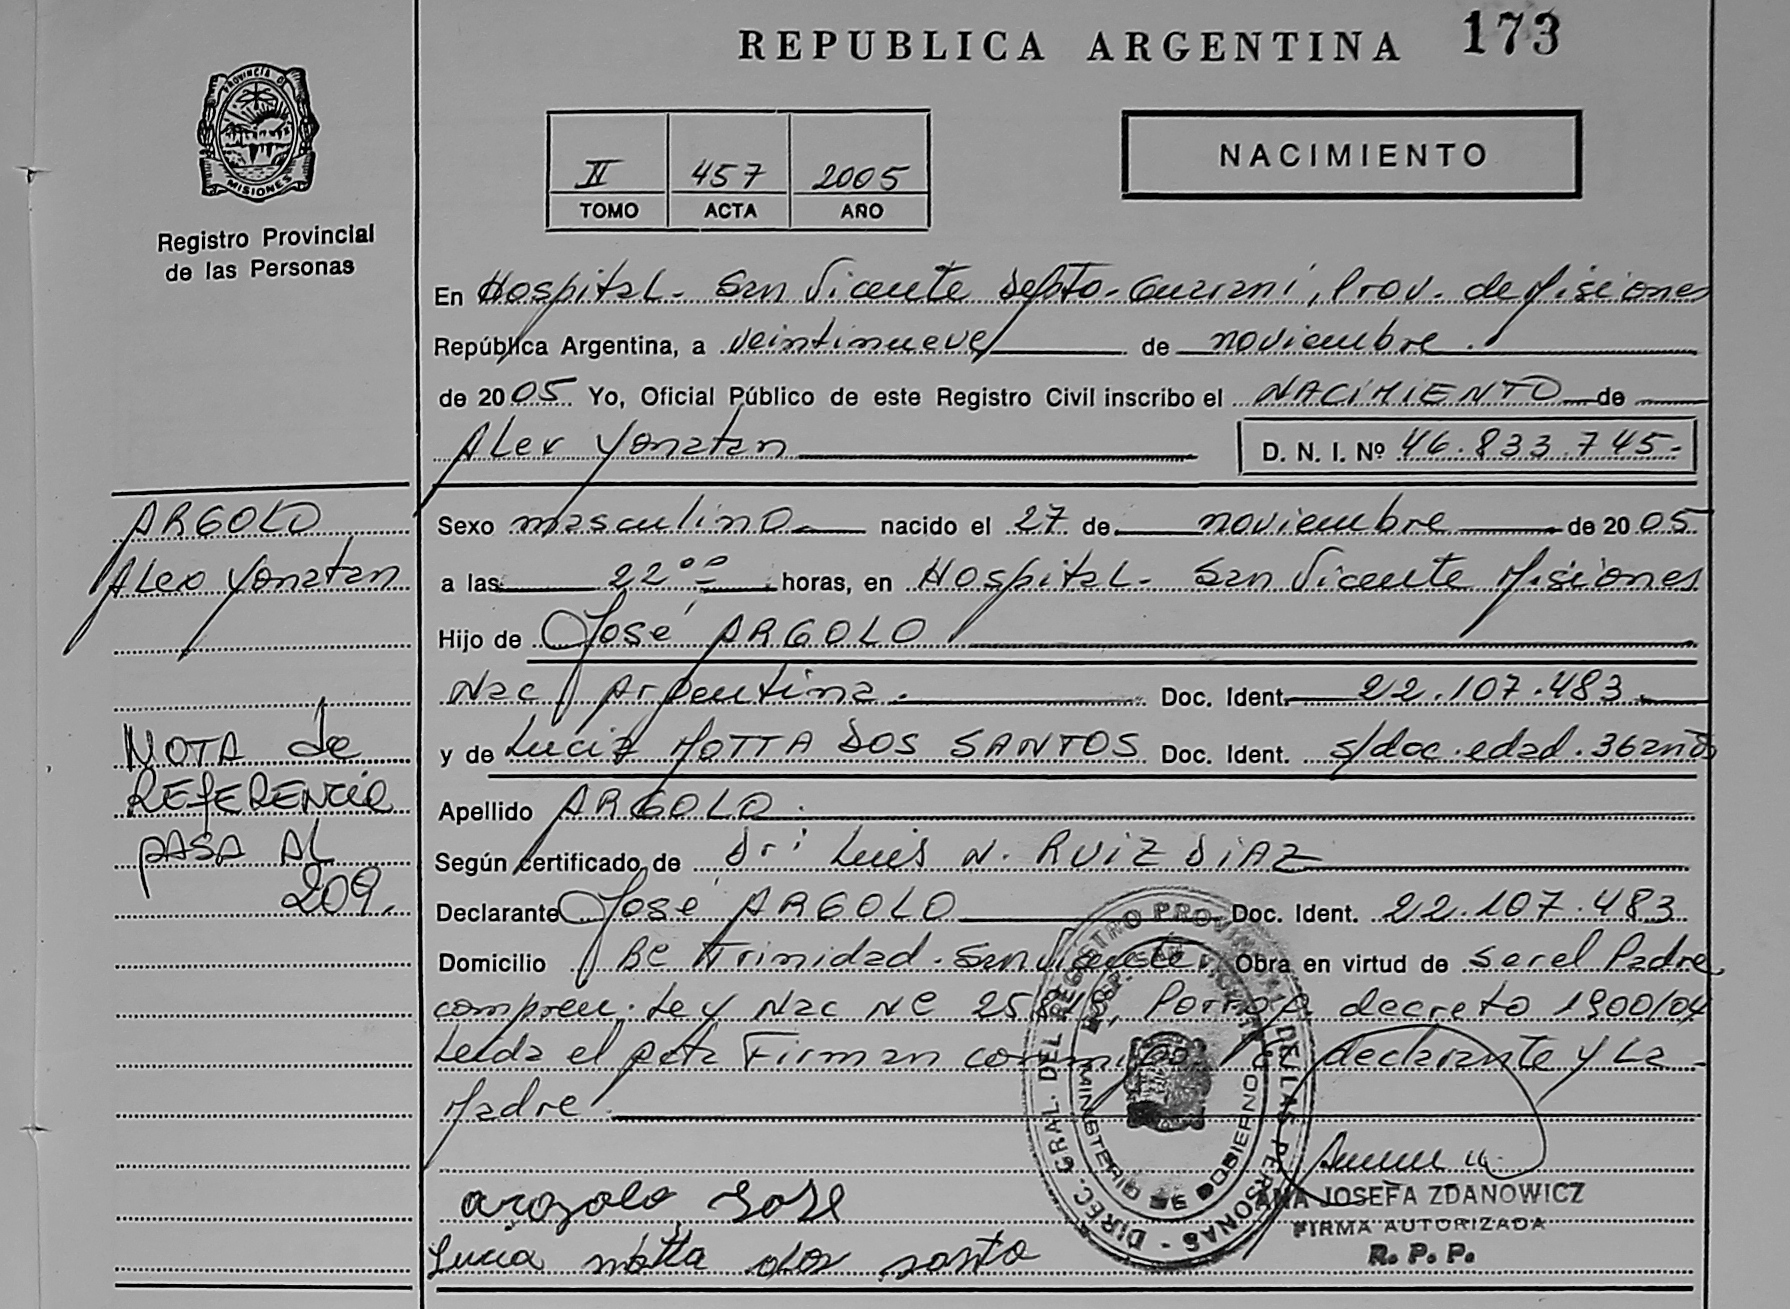 REPUBLICA ARGENTINA 173
PROVINCIA DE
MISIONES
Registro Provincial
de las Personas
II 457 2005
TOMO ACTA AÑO
NACIMIENTO
En Hospital - San Vicente Depto - Guarani, Prov. de Misiones
República Argentina, a veintinueve de noviembre.
de 2005 Yo, Oficial Público de este Registro Civil inscribo el NACIMIENTO de
Alex Yonatan D. N. I. Nº 46.833.745-
ARGOLO
Alex Yonatan
Sexo masculino nacido el 27 de noviembre de 2005
a las 22°° horas, en Hospital - San Vicente Misiones
Hijo de José ARGOLO
Nac Argentina. Doc. Ident. 22.107.483
y de Lucia MOTTA DOS SANTOS Doc. Ident. s/doc. edad. 36 años
NOTA de
REFERENCIA
PASA AL
209.
Apellido ARGOLO.
Según certificado de Dr: Luis N. RUIZ DIAZ
Declarante José ARGOLO Doc. Ident. 22.107.483
Domicilio Bº Trinidad. San Vicente. Obra en virtud de ser el Padre
compren. Ley Nac Nº decreto 1900/04
Leida el Acta Firman declarante y La
Madre.
DIREC. GRAL. DEL REGISTRO PROVINCIAL DE LAS PERSONAS
MINISTERIO DE GOBIERNO
argolo Jose
Lucia motta dos santo
ANA JOSEFA ZDANOWICZ
FIRMA AUTORIZADA
R. P. P.